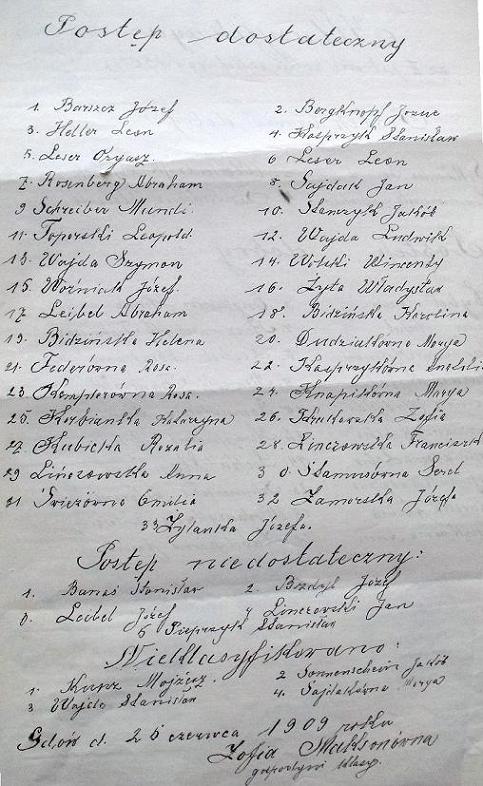 Postęp dostateczny
1. Barszcz Józef 2. Bergknopf Józue
3. Heller Leon 4. Kasprzyk Stanisław
5. Leser Ozyasz. 6 Leser Leon
7. Rosenberg Abraham 8. Sajdak Jan
9 Schreiber Mundi. 10. Stanczyk Jakób
11. Toperski Leopold 12. Wajda Ludwik
13. Wajda Szymon 14. Wolski Wincenty
15. Woźniak Józef. 16. Zyła Władysław
17 Leibel Abraham 18. Bidzińska Karolina
19. Bidzińska Helena 20. Dudziakówna Marya
21. Federówna Rosa. 22. Kasprzykówna
23. Kemplerówna Rosa. 24. Knapikówna Marya
25. Katarzyna 26. Zofia
27. Kubicka Rozalia 28. Linczowska Franciszk
29 Linczowska Anna 30. Stamusówna
31 Świerzówna Emilia 32 Zamorska Józefa
33 Zylanka Józefa.
Postęp niedostateczny:
1. Banaś Stanisław 2. Józef
3. Leibel Józef 4 Linczowski Jan
5 Pieprzyk Stanisław
Nieklasyfikowano:
1. Kurz Mojżesz. 2 Sonnenschein Jakób
3 Wajda Stanisław 4. Sajdakówna Marya
Gdów d. 26 czerwca 1909 roku
Zofia Maksonówna
gospodyni klasy.